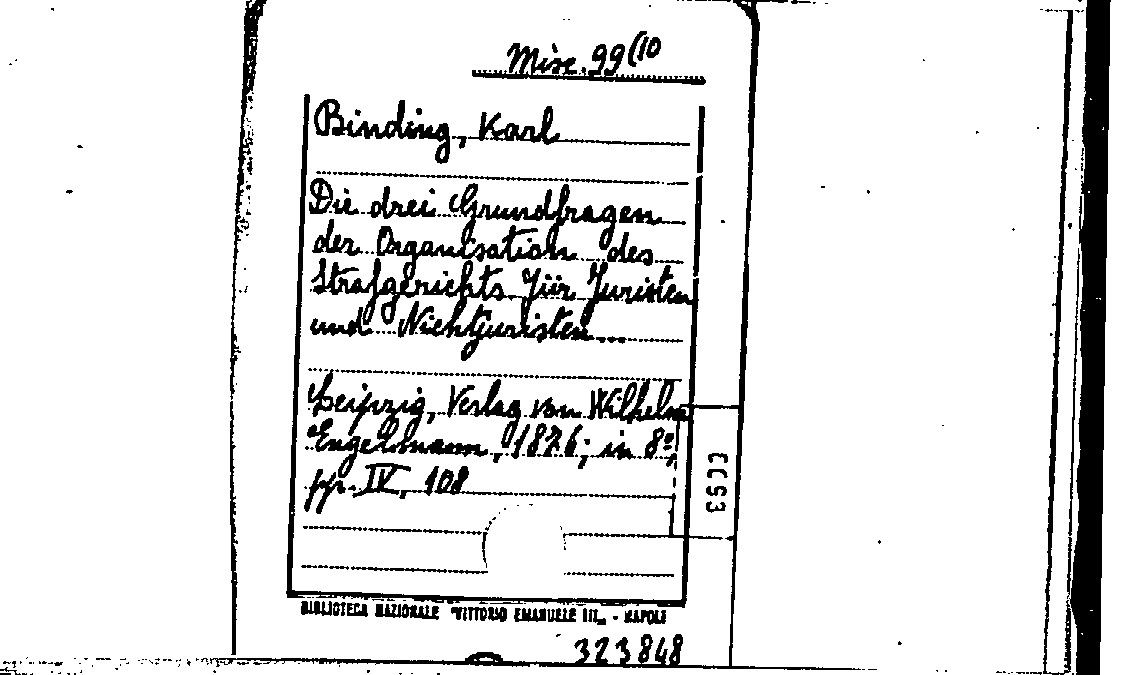 Misc. 99(10
Binding, Karl
Die drei Grundfragen
der Organisation des
Strafgerichts für Juristen
und Nichtjuristen...
Leipzig, Verlag von Wilhelm
Engelmann, 1876; in 8º,
pp. IV, 108
BIBLIOTECA NAZIONALE "VITTORIO EMANUELE III„ - NAPOLI
323848